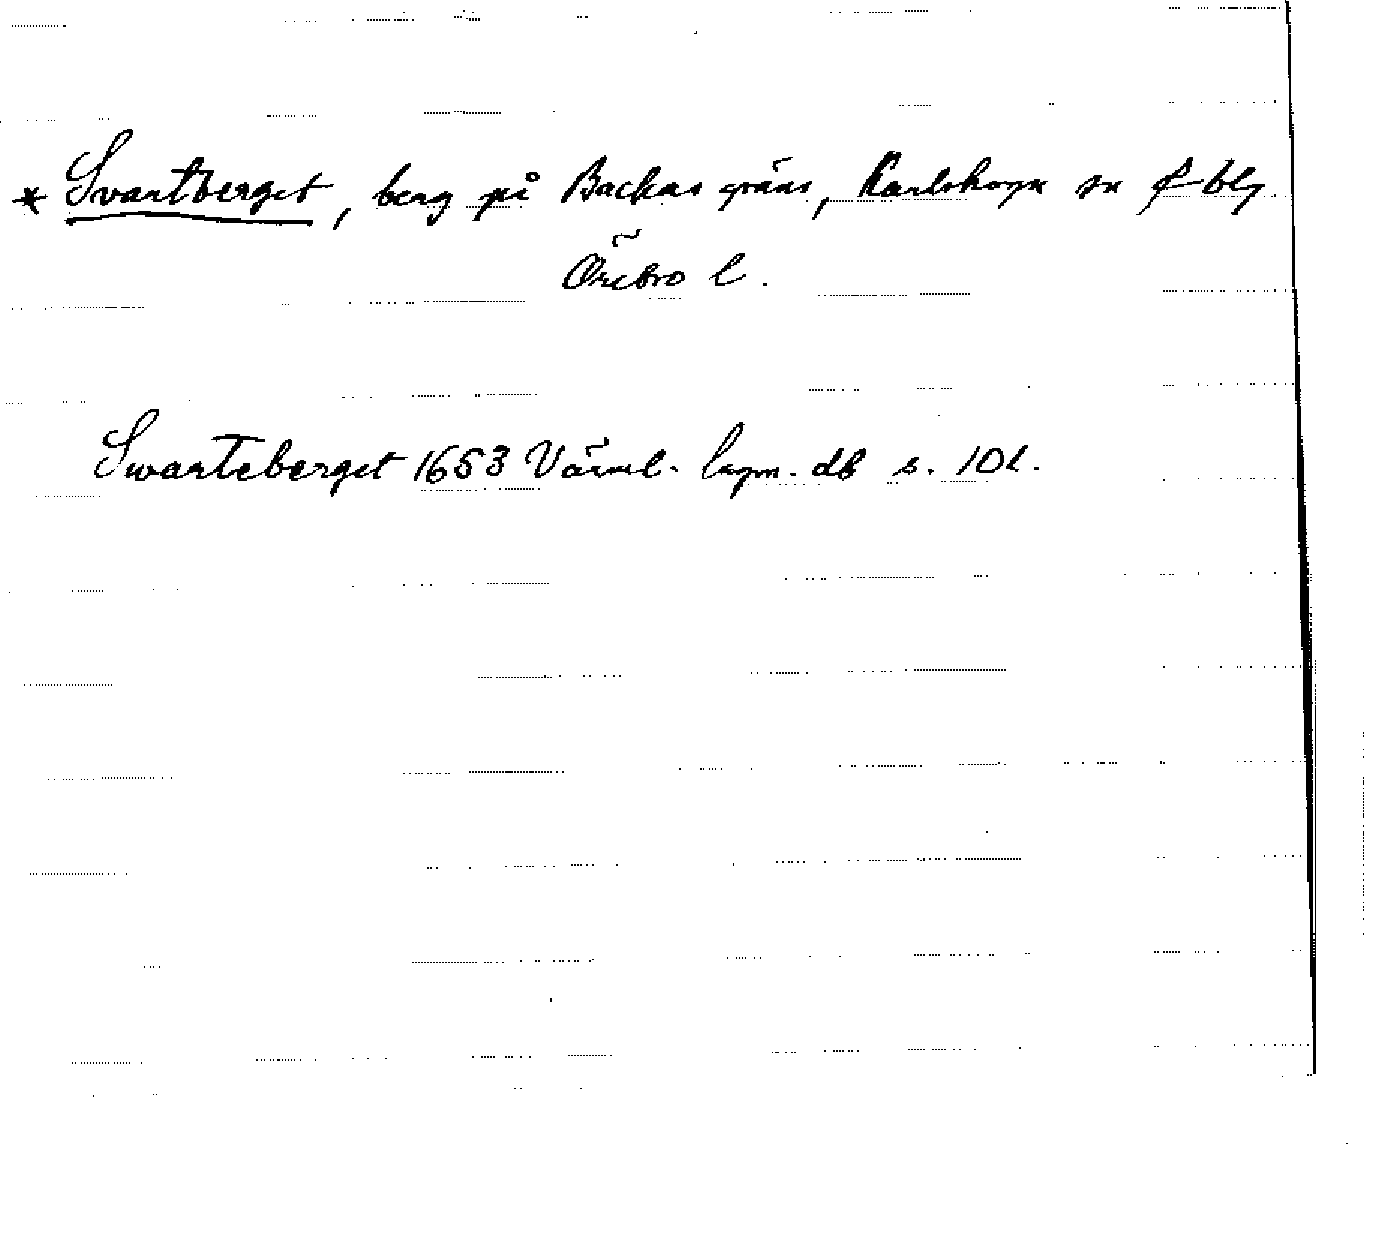 * Svartberget, berg på Backas gräns, Karlskoga sn o blg
Örebro l.
Swarteberget 1653 Värml. lagm. db s. 101.